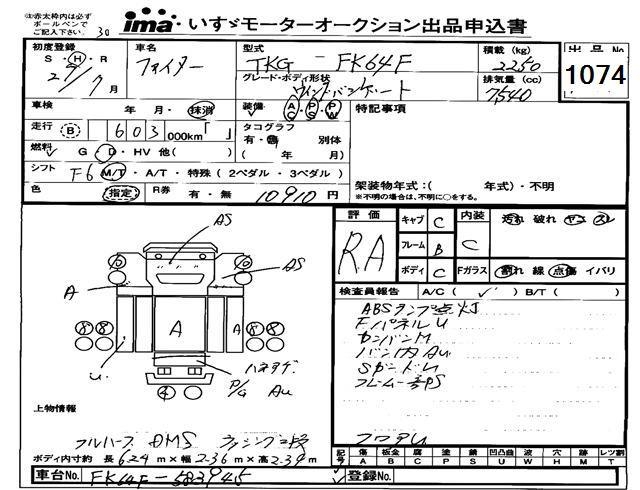 注)赤太枠内は必ず
ボールペンで
ご記入下さい。 30
ima いすゞモーターオークション出品申込書
初度登録 S・H・R 27/7月
車名 ファイター
型式 TKG-FK64F
グレード・ボディ形状
積載(kg) 2250
排気量(cc) 7,540
出品No 1074
車検 年 月・抹消
装備 AC・PS・PW
特記事項
走行 B 603 000km
タコグラフ 有・無 別体
( 年 月)
燃料 G・D・HV 他( )
シフト F6 M/T・A/T・特殊(2ペダル・3ペダル)
架装物年式:( 年式)・不明
※不明の場合は、不明に○をする。
色 指定 R券 有・無 10910円
評価 RA
キャブ C
フレーム B
ボディ C
内装 C
汚れ 破れ ヤニ スレ
Fガラス 割れ 線 点傷 イバリ
検査員報告 A/C( ✓ ) B/T( )
ABSランプ点灯
FパネルU
カンバンM
バン内AU
フロアU
AS
AS
A
A
10 10
8 8 8 8
4
U
P/G AU
上物情報
フルハーフ DMS ラッシング2段
ボディ内寸約 長 6.24 m×幅 2.36 m×高 2.39 m
記号 傷A 板金B 腐C 塗P 錆S 凹凸曲U 波W 穴H 跡M レツ割T
車台No. FK64F-583945
登録No.